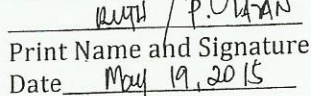 RUTH / P.
Print Name and Signature
Date May 19, 2015